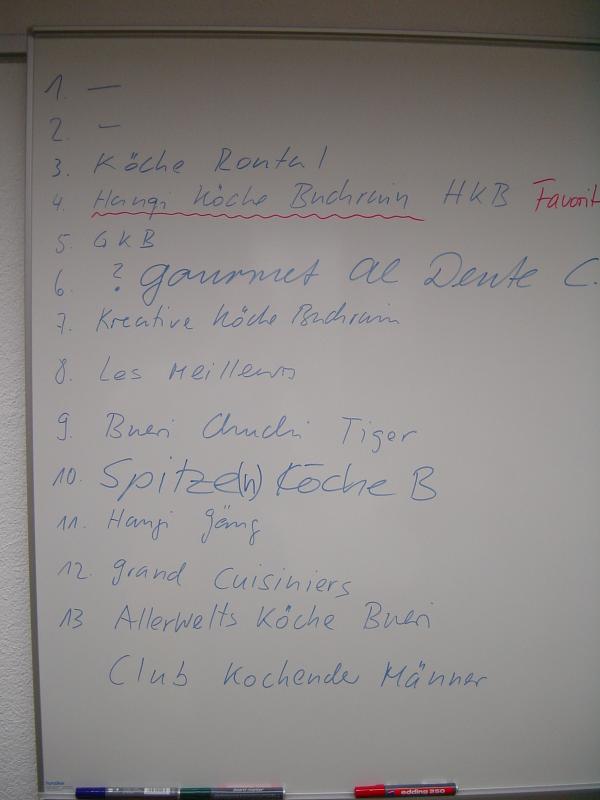 1. —
2. —
3. Köche Rontal
4. Hangi Köche Buchrain HKB Favorit
5. GKB
6. ? gourmet al Dente C.
7. Kreative Köche Buchrain
8. Les Meilleurs
9. Bueri Chuchi Tiger
10. Spitze(n) Köche B
11. Hangi gäng
12. grand Cuisiniers
13 Allerwelts Köche Bueri
Club Kochender Männer
edding 250